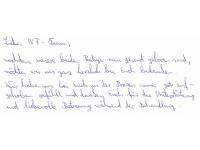 Liebe IVF-Team,
nachdem unsere beiden Babys nun gesund geboren sind,
möchten wir uns ganz herzlich bei Euch bedanken.
Wir haben uns bei Euch in der Praxis immer gut auf-
gehoben gefühlt und danken Euch für die Unterstützung
und liebevolle Betreuung während der Behandlung